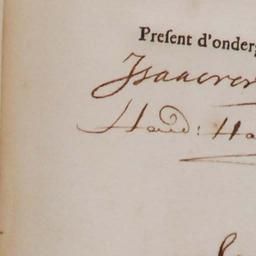 Preſent d'onder
Isaac ver
Hend: Ha